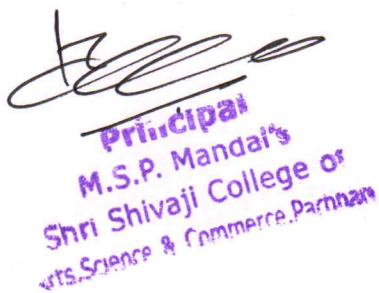 Principal
M.S.P. Mandal's
Shri Shivaji College of
Arts, Science & Commerce, Parbhani